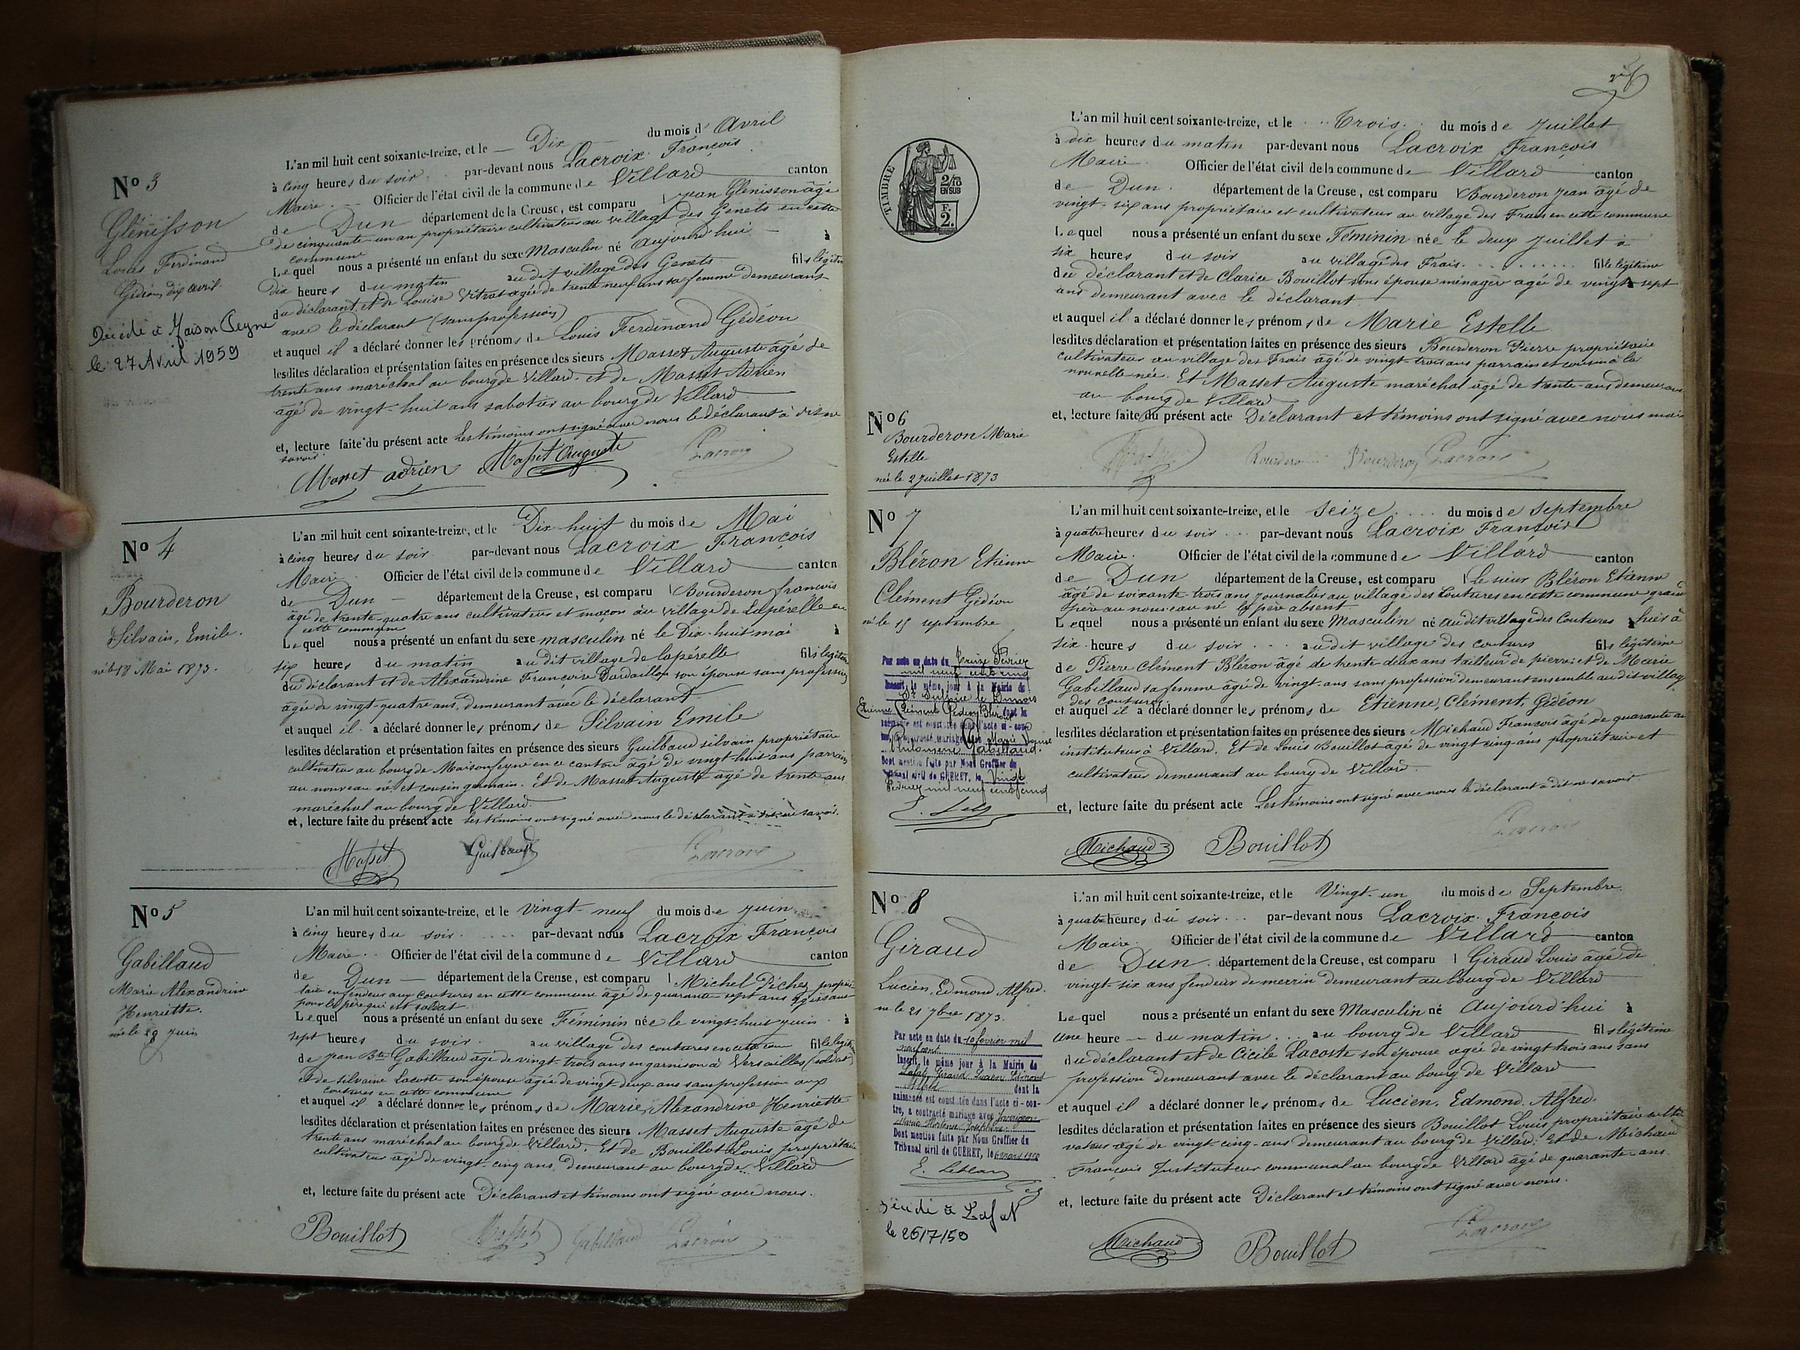 No 3
Glénisson
Louis Ferdinand
Gédéon, dix avril
Décédé à Maison Feyne
le 27 Avril 1959
L'an mil huit cent soixante-treize, et le Dix du mois d'Avril
à cinq heures du soir par-devant nous Lacroix François
Maire Officier de l'état civil de la commune de Villard canton
de Dun département de la Creuse, est comparu Jean Glénisson âgé
de cinquante-un an propriétaire cultivateur au village des Genets en cette
commune
Lequel nous a présenté un enfant du sexe Masculin né aujourd'hui à
dix heures du matin au dit village des Genets fils légitime
du déclarant et de Louise Vitrat agée de trente neuf ans sa femme demeurant
avec le déclarant (sans profession)
et auquel il a déclaré donner les prénoms de Louis Ferdinand Gédéon
lesdites déclaration et présentation faites en présence des sieurs Masset Auguste âgé de
trente ans maréchal au bourg de Villard et de Masset Adrien
âgé de vingt-huit ans sabotier au bourg de Villard
et, lecture faite du présent acte les témoins ont signé avec nous le déclarant a dit ne
savoir
Masset adrien Masset Auguste Lacroix
No 4
Bourderon
Silvain, Emile.
né le 18 Mai 1873.
L'an mil huit cent soixante-treize, et le Dix huit du mois de Mai
à cinq heures du soir par-devant nous Lacroix François
Maire Officier de l'état civil de la commune de Villard canton
de Dun département de la Creuse, est comparu Bourderon françois
âgé de trente quatre ans cultivateur et maçon au village de Lapérelle en
cette commune
Lequel nous a présenté un enfant du sexe masculin né le Dix-huit mai à
six heures du matin au dit village de lapérelle fils légitime
du déclarant et de Alexandrine Françoise Dardaillon son épouse sans profession
âgée de vingt-quatre ans, demeurant avec le déclarant
et auquel il a déclaré donner les prénoms de Silvain Emile
lesdites déclaration et présentation faites en présence des sieurs Guilbaud silvain propriétaire
cultivateur au bourg de Maisonfeyne en ce canton âgé de vingt huit ans parrain
au nouveau né et cousin germain. Et de Masset Auguste âgé de trente ans
maréchal au bourg de Villard
et, lecture faite du présent acte les témoins ont signé avec nous le déclarant a dit ne savoir.
Masset Guilbaud Lacroix
No 5
Gabillaud
Marie Alexandrine
Henriette.
née le 28 juin
L'an mil huit cent soixante-treize, et le vingt-neuf du mois de juin
à cinq heures du soir par-devant nous Lacroix François
Maire Officier de l'état civil de la commune de Villard canton
de Dun département de la Creuse, est comparu Michel Pichex
aux coutures en cette commune âgé de quarante sept ans agissant
pour le père qui est soldat
Lequel nous a présenté un enfant du sexe Féminin née le vingt-huit juin à
sept heures du soir au village des coutures fille légitime
de Jean Bte Gabillaud âgé de vingt trois ans en garnison à Versailles (soldat)
et de silvaine Lacoste son épouse âgée de vingt deux ans sans profession aux
coutures en cette commune
et auquel il a déclaré donner les prénoms de Marie, Alexandrine Henriette
lesdites déclaration et présentation faites en présence des sieurs Masset Auguste âgé de
trente ans maréchal au bourg de Villard. Et de Bouillot Louis propriétaire
cultivateur âgé de vingt-cinq ans, demeurant au bourg de Villard
et, lecture faite du présent acte Déclarant et témoins ont signé avec nous.
Bouillot Masset Gabillaud Lacroix
TIMBRE
2/10
EN SUS
F.
2.
No 6
Bourderon Marie
Estelle
née le 2 Juillet 1873
L'an mil huit cent soixante-treize, et le Trois du mois de Juillet
à dix heures du matin par-devant nous Lacroix François
Maire Officier de l'état civil de la commune de Villard canton
de Dun département de la Creuse, est comparu Bourderon Jean âgé de
vingt-six ans propriétaire et cultivateur au village des Frais en cette commune
Lequel nous a présenté un enfant du sexe Féminin née le deux Juillet à
six heures du soir au village des Frais fille légitime
du déclarant et de Clarice Bouillot son épouse ménagère agée de vingt-sept
ans demeurant avec le déclarant
et auquel il a déclaré donner les prénoms de Marie Estelle
lesdites déclaration et présentation faites en présence des sieurs Bourderon Pierre propriétaire
cultivateur au village des Frais âgé de vingt trois ans parrain et cousin à la
nouvelle née. Et Masset Auguste maréchal âgé de trente ans demeurant
au bourg de Villard
et, lecture faite du présent acte Déclarant et témoins ont signé avec nous maire
Bourderon Bourderon Lacroix
No 7
Bléron Etienne
Clément Gédéon
né le 15 septembre
Par acte en date du treize Février
mil neuf cent cinq
Inscrit, le même jour à la Mairie de
St Sulpice le Dunois
Etienne Clément Gédéon Bléron dont la
naissance est constatée dans l'acte ci-contre,
a contracté mariage avec Marie
Gabillaud.
Dont mention faite par Nous Greffier du
Tribunal civil de GUÉRET, le Vingt
Février mil neuf cent cinq
L'an mil huit cent soixante-treize, et le seize du mois de Septembre
à quatre heures du soir par-devant nous Lacroix François
Maire Officier de l'état civil de la commune de Villard canton
de Dun département de la Creuse, est comparu le sieur Bléron Etienne
âgé de soixante trois ans journalier au village des Coutures en cette commune grand
père au nouveau né le père absent
Lequel nous a présenté un enfant du sexe Masculin né au dit village des Coutures hier à
six heures du soir au dit village des coutures fils légitime
de Pierre Clément Bléron âgé de trente-deux ans tailleur de pierre et de Marie
Gabillaud sa femme âgée de vingt-ans sans profession demeurant ensemble au dit village
des coutures
et auquel il a déclaré donner les prénoms de Etienne, Clément, Gédéon
lesdites déclaration et présentation faites en présence des sieurs Michaud François âgé de quarante ans
instituteur à Villard. Et de Louis Bouillot âgé de vingt cinq ans propriétaire et
cultivateur demeurant au bourg de Villard
et, lecture faite du présent acte Les témoins ont signé avec nous le déclarant a dit ne savoir
Michaud Bouillot Lacroix
No 8
Giraud
Lucien, Edmond, Alfred.
né le 21 7bre 1873.
Par acte en date du 10 février mil
neuf cent
Inscrit, le même jour à la Mairie de
Lafat, Giraud Lucien Edmond
Alfred dont la
naissance est constatée dans l'acte ci-contre,
a contracté mariage avec
Marie
Dont mention faite par Nous Greffier du
Tribunal civil de GUÉRET, le 6 mars 1900
E. Leblanc
Décédé à Lafat
le 26/7/50
L'an mil huit cent soixante-treize, et le Vingt-un du mois de Septembre.
à quatre heures du soir par-devant nous Lacroix François
Maire Officier de l'état civil de la commune de Villard canton
de Dun département de la Creuse, est comparu Giraud Louis âgé de
vingt six ans fendeur de merrin demeurant au bourg de Villard
Lequel nous a présenté un enfant du sexe Masculin né aujourd'hui à
une heure du matin au bourg de Villard fils légitime
du déclarant et de Cécile Lacoste son épouse agée de vingt trois ans sans
profession demeurant avec le déclarant au bourg de Villard
et auquel il a déclaré donner les prénoms de Lucien, Edmond, Alfred
lesdites déclaration et présentation faites en présence des sieurs Bouillot Louis propriétaire culti-
vateur âgé de vingt-cinq-ans demeurant au bourg de Villard. Et de Michaud
François Instituteur communal au bourg de Villard âgé de quarante-ans
et, lecture faite du présent acte Déclarant et témoins ont signé avec nous.
Michaud Bouillot Lacroix